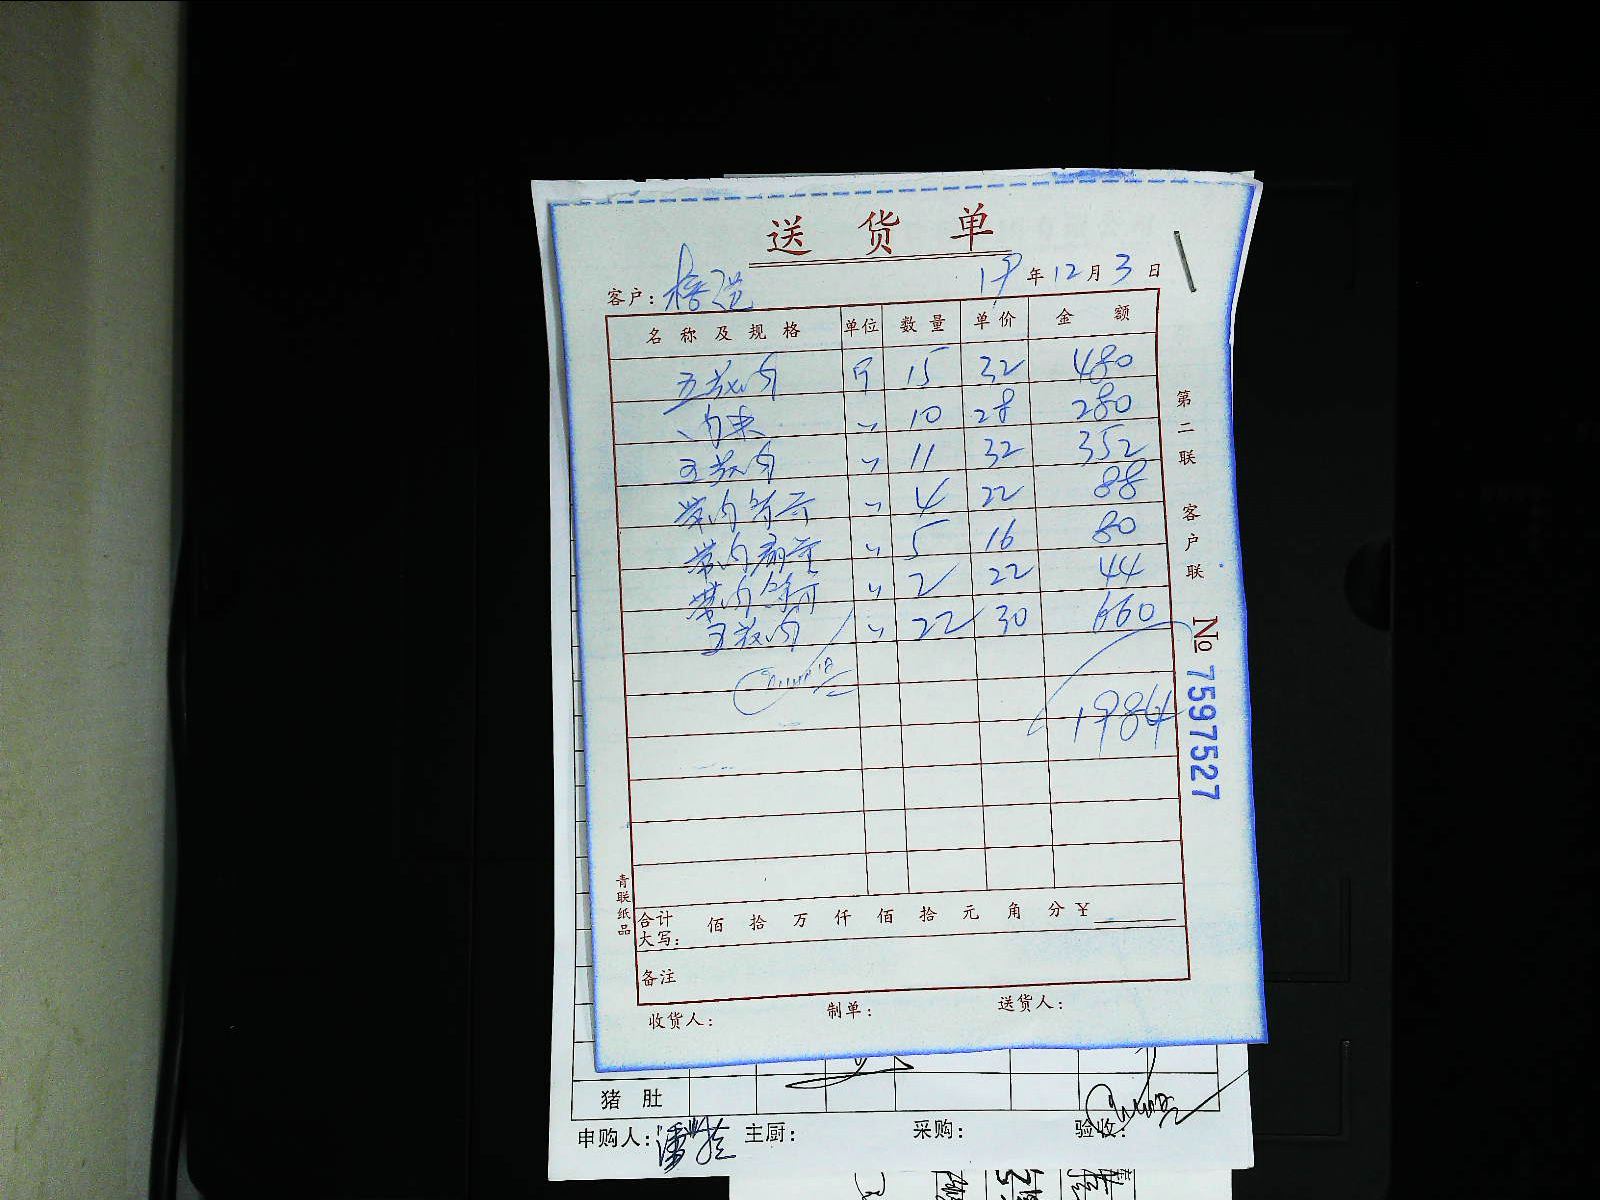 送货单
客户：
19年12月3日
名称及规格 单位 数量 单价 金额
五花肉 斤 15 32 480
肉末 〃 10 28 280
五花肉 〃 11 32 352
带肉筒骨 〃 4 22 88
带肉扇骨 〃 5 16 80
带肉筒骨 〃 2 22 44
五花肉 〃 22 30 660
1984
合计大写： 佰 拾 万 仟 佰 拾 元 角 分 ￥
备注
收货人： 制单： 送货人：
第二联 客户联
No 7597527
青联纸品
猪肚
申购人： 主厨： 采购： 验收：